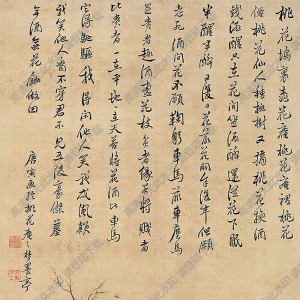 桃花塢裏桃花庵桃花庵裏桃花
僊桃花仙人種桃樹又摘桃花換酒
錢酒醒只在花間坐酒醉還須花下眠
半醒半醉日復日花開花落年復年但願
老死酒間花不願鞠躬車馬前車塵馬
足貴者趣酒盞花枝貧者緣若將
比貧者一在平地一在天若將花酒比車馬
他得驅馳我得閒他人笑我忒風顛
我笑他人看不穿君不見五陵豪傑墓
無酒無花鋤作田
唐寅畫於桃花庵之夢墨亭